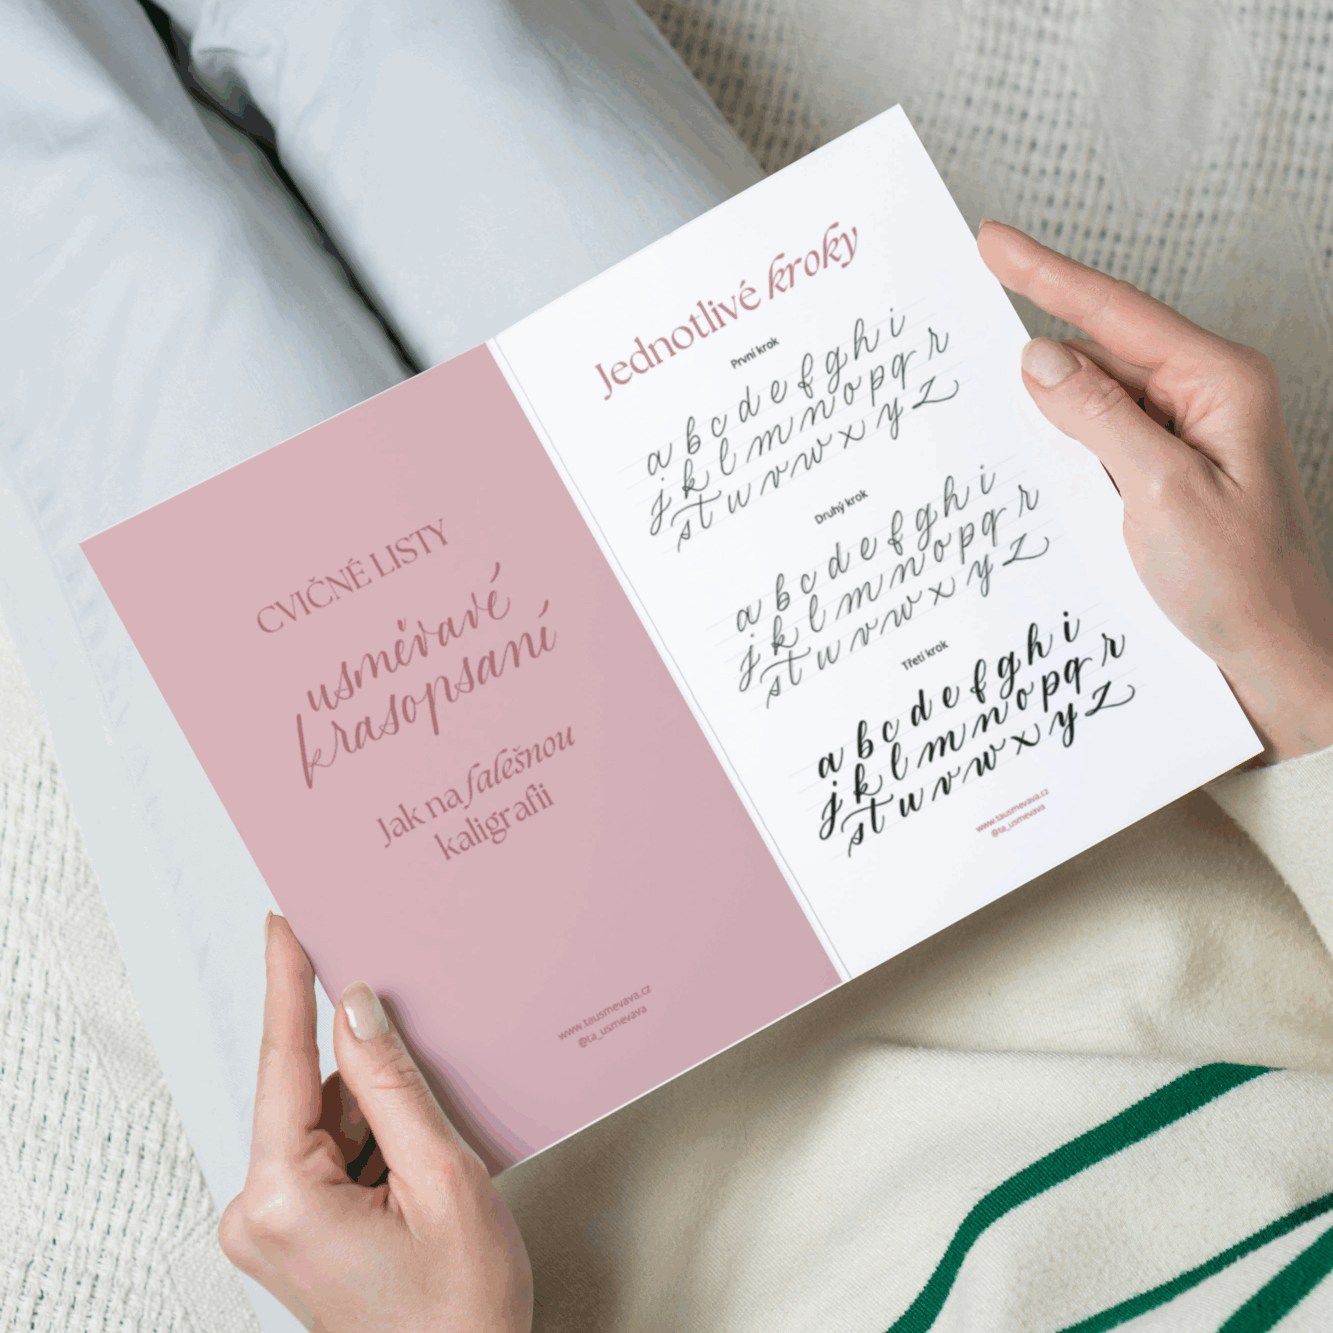 CVIČNÉ LISTY
usměvavé
krasopsaní
Jak na falešnou
kaligrafii
www.tausmevava.cz
@ta_usmevava
Jednotlivé kroky
První krok
a b c d e f g h i
j k l m n o p q r
s t u v w x y z
Druhý krok
a b c d e f g h i
j k l m n o p q r
s t u v w x y z
Třetí krok
a b c d e f g h i
j k l m n o p q r
s t u v w x y z
www.tausmevava.cz
@ta_usmevava